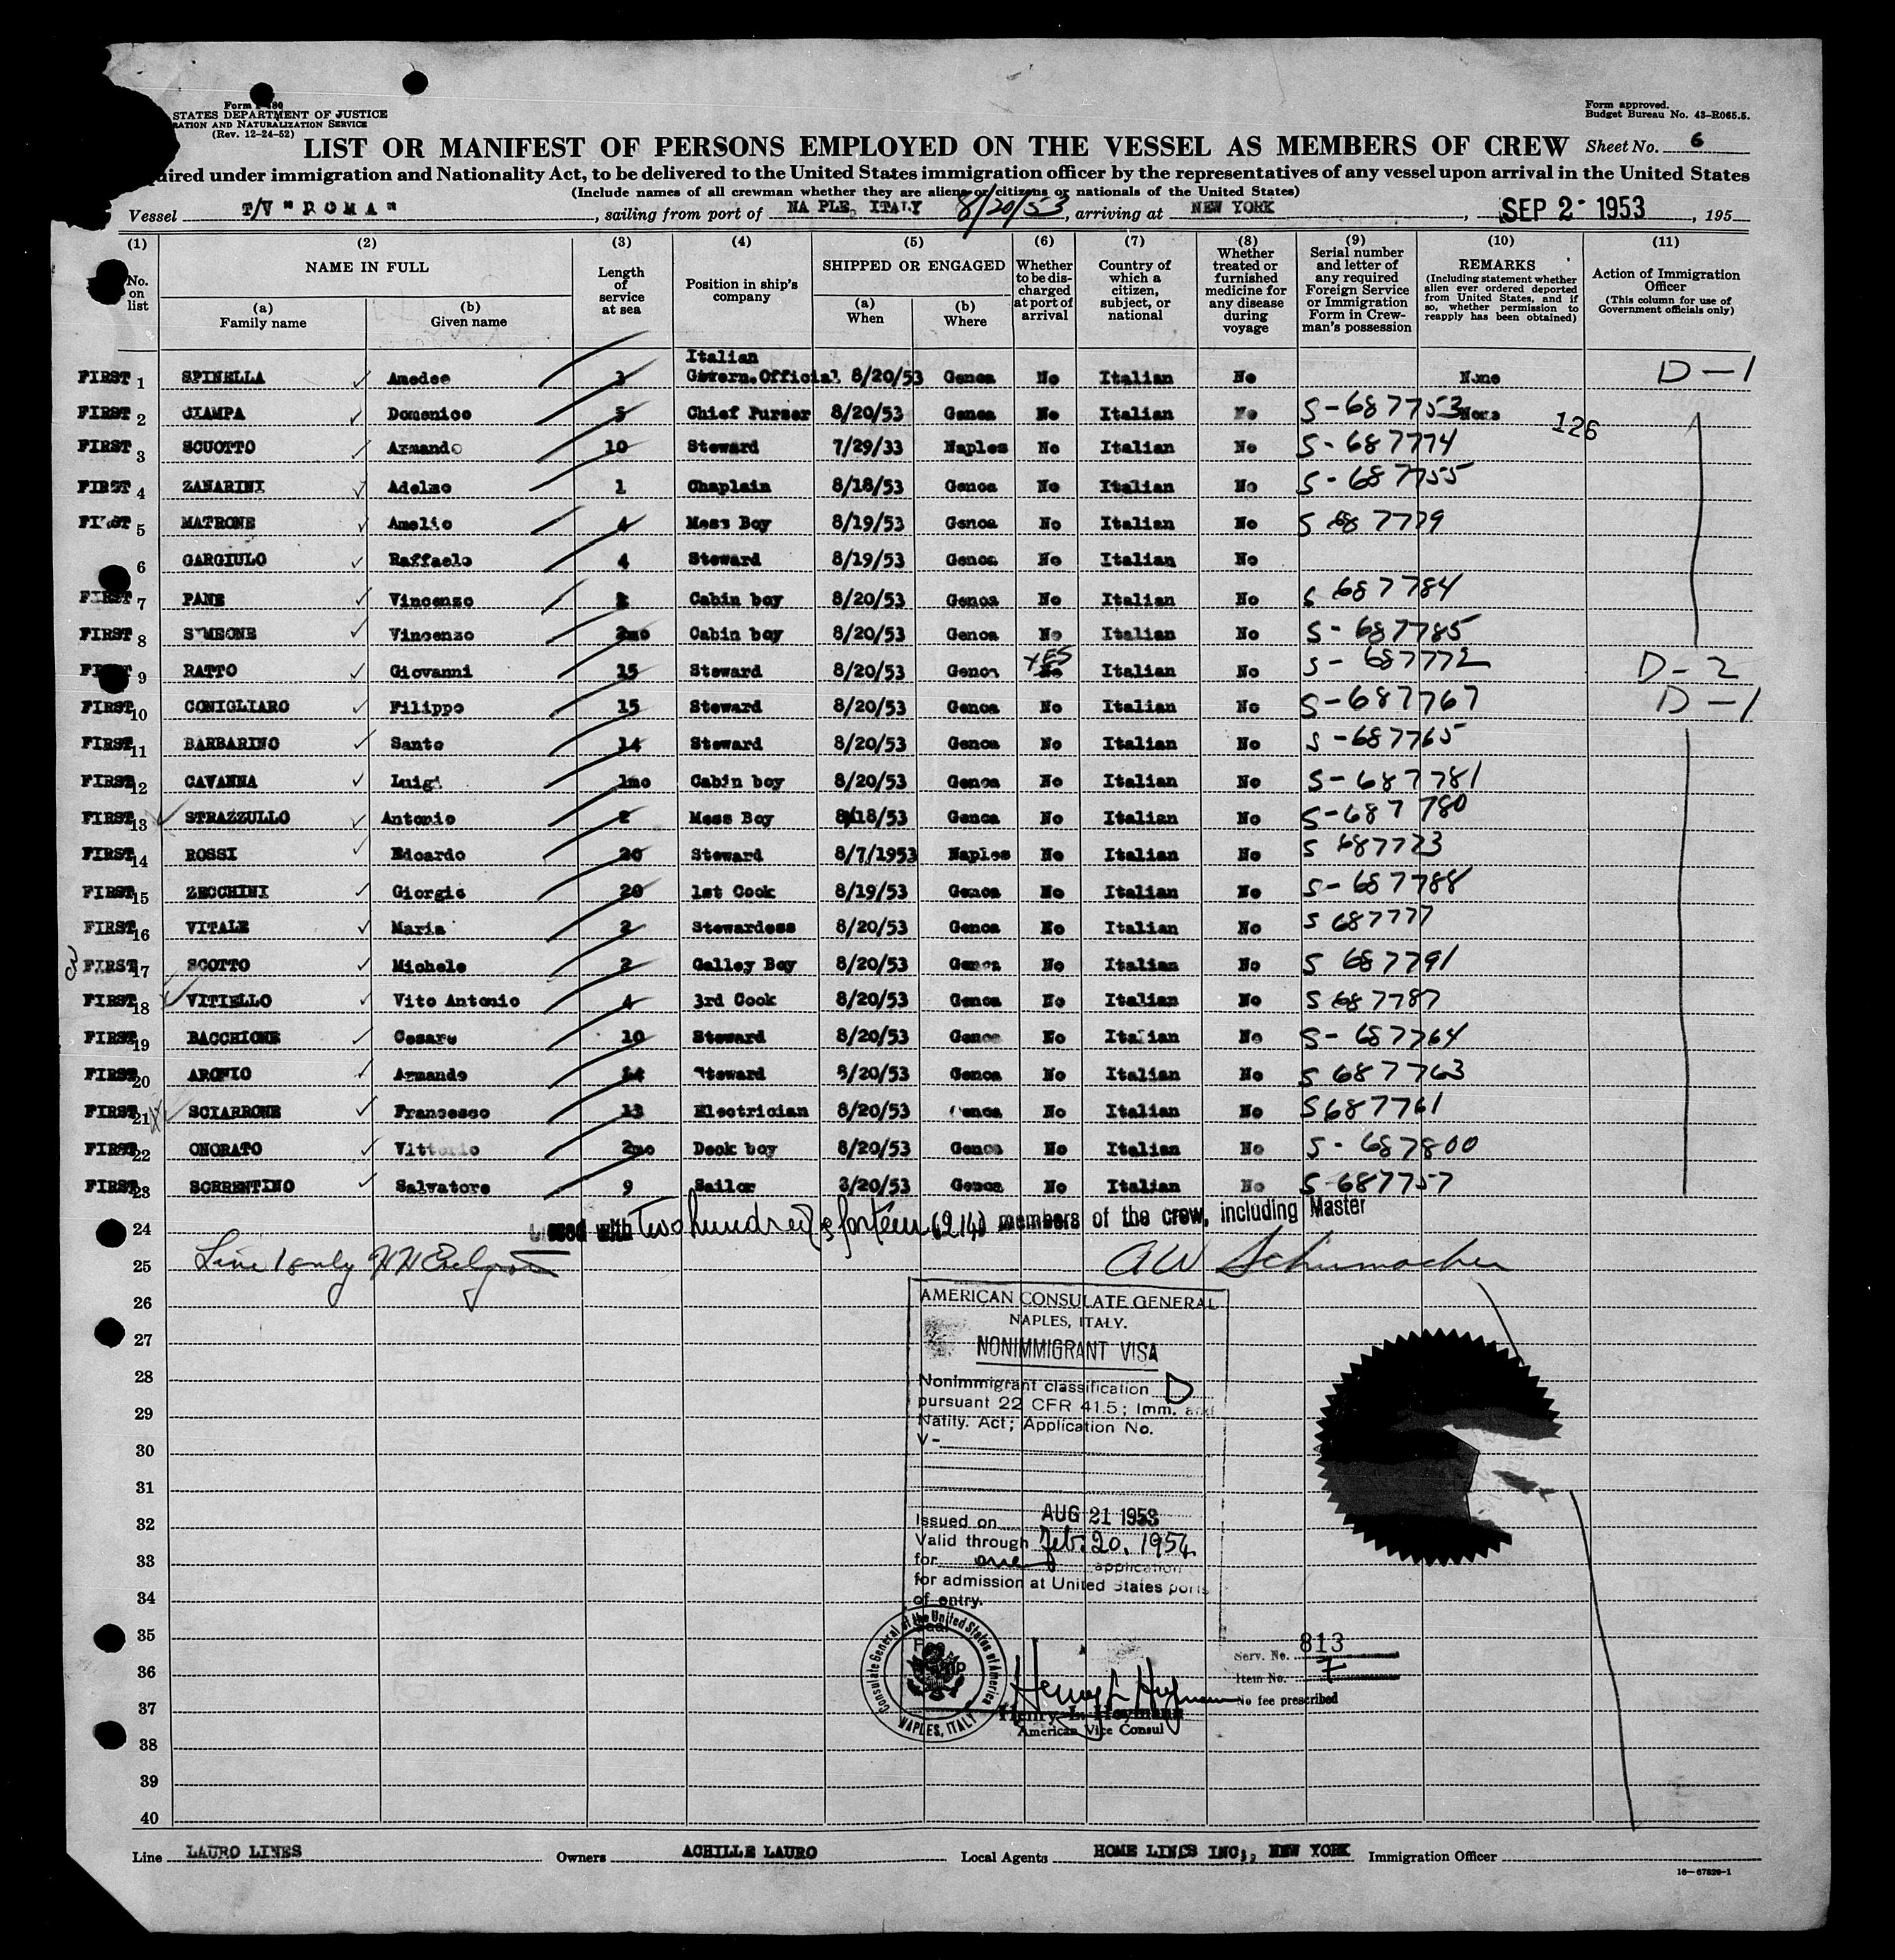 Form I-480
STATES DEPARTMENT OF JUSTICE
RATION AND NATURALIZATION SERVICE
(Rev. 12-24-52)
Form approved.
Budget Bureau No. 43-R065.5.
LIST OR MANIFEST OF PERSONS EMPLOYED ON THE VESSEL AS MEMBERS OF CREW Sheet No. 6
quired under immigration and Nationality Act, to be delivered to the United States immigration officer by the representatives of any vessel upon arrival in the United States
(Include names of all crewman whether they are aliens or citizens or nationals of the United States)
Vessel T/V "ROMA", sailing from port of NA PLE, ITALY 8/20/53, arriving at NEW YORK, SEP 2- 1953, 195
(1) (2) (3) (4) (5) (6) (7) (8) (9) (10) (11)
No. on list
NAME IN FULL
(a) Family name
(b) Given name
Length of service at sea
Position in ship's company
SHIPPED OR ENGAGED
(a) When
(b) Where
Whether to be discharged at port of arrival
Country of which a citizen, subject, or national
Whether treated or furnished medicine for any disease during voyage
Serial number and letter of any required Foreign Service or Immigration Form in Crewman's possession
REMARKS
(Including statement whether alien ever ordered deported from United States, and if so, whether permission to reapply has been obtained)
Action of Immigration Officer
(This column for use of Government officials only)
FIRST 1 SPINELLA Amedeo Italian Govern.Official 8/20/53 Genoa No Italian No None D-1
FIRST 2 CIAMPA Domenico 5 Chief Purser 8/20/53 Genoa No Italian No S-687753 None 126
FIRST 3 SCUOTTO Armando 10 Steward 7/29/33 Naples No Italian No S-687774
FIRST 4 ZANARINI Adelmo 1 Chaplain 8/18/53 Genoa No Italian No S-687755
FIRST 5 MATRONE Amelio 4 Mess Boy 8/19/53 Genoa No Italian No S 687779
6 GARGIULO Raffaelo 4 Steward 8/19/53 Genoa No Italian No
FIRST 7 PANE Vincenzo Cabin boy 8/20/53 Genoa No Italian No S 687784
FIRST 8 SYMEONE Vincenzo 2mo Cabin boy 8/20/53 Genoa No Italian No S-687785
FIRST 9 RATTO Giovanni 15 Steward 8/20/53 Genoa YES No Italian No S-687772 D-2
FIRST 10 CONIGLIARO Filippo 15 Steward 8/20/53 Genoa No Italian No S-687767 D-1
FIRST 11 BARBARINO Santo 14 Steward 8/20/53 Genoa No Italian No S-687765
FIRST 12 CAVANNA Luigi 1mo Cabin boy 8/20/53 Genoa No Italian No S-687781
FIRST 13 STRAZZULLO Antonio 2 Mess Boy 8/18/53 Genoa No Italian No S-687780
FIRST 14 ROSSI Edoardo 20 Steward 8/7/1953 Naples No Italian No S 687773
FIRST 15 ZECCHINI Giorgio 20 1st Cook 8/19/53 Genoa No Italian No S-687788
FIRST 16 VITALE Maria 2 Stewardess 8/20/53 Genoa No Italian No S 687777
3 FIRST 17 SCOTTO Michele 2 Galley Boy 8/20/53 Genoa No Italian No S 687791
FIRST 18 VITIELLO Vito Antonio 4 3rd Cook 8/20/53 Genoa No Italian No S 687787
FIRST 19 BACCHIONE Cesare 10 Steward 8/20/53 Genoa No Italian No S-687764
FIRST 20 ARONIO Armando 14 Steward 8/20/53 Genoa No Italian No S 687763
FIRST 21 SCIARRONE Francesco 13 Electrician 8/20/53 Genoa No Italian No S687761
FIRST 22 ONORATO Vittorio 2mo Deck boy 8/20/53 Genoa No Italian No S-687800
FIRST 23 SORRENTINO Salvatore 9 Sailor 8/20/53 Genoa No Italian No S-687757
24 with Two hundred & forteen (214) members of the crew, including Master
25 Line 1 only AW Schumacher
26
27
28
29
30
31
32
33
34
35
36
37
38
39
40
AMERICAN CONSULATE GENERAL
NAPLES, ITALY.
NONIMMIGRANT VISA
Nonimmigrant classification D
pursuant 22 CFR 41.5; Imm. and
Natlty. Act; Application No.
V-
Issued on AUG 21 1953
Valid through Feb. 20, 1954
for one application
for admission at United States ports
of entry.
Consulate General of the United States of America
NAPLES, ITALY
Henry L. Heymann
Henry L. Heymann
American Vice Consul
Serv. No. 813
Item No. 7
No fee prescribed
Line LAURO LINES Owners ACHILLE LAURO Local Agents HOME LINES INC., NEW YORK Immigration Officer
16-67829-1